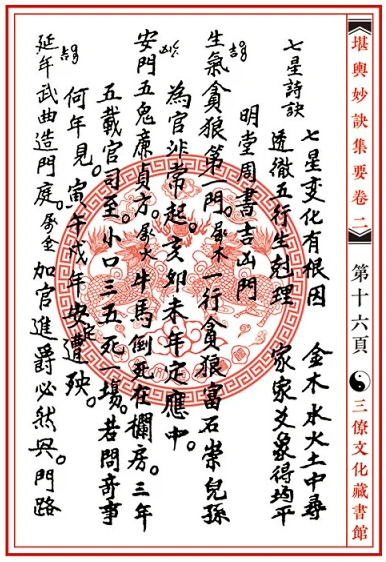 堪輿妙訣集要卷二
第十六頁
三僚文化藏書館
七星詩訣
七星变化有根因 金木水火土中尋
透徹五行生剋理 家家爻象得均平
明堂周書吉山門
生氣吉貪狼第一門。屬木 一行貪狼富石崇兒孫
為官非常起。亥卯未年定應中。
安門凶五鬼廉貞方。屬火 牛馬倒死在欄房。三年
五載官司至。小口三五死一場。若問奇事
何年見。寅午戌年安定遭殃。
延年吉武曲造門庭。屬金 加官進爵必然興。門路